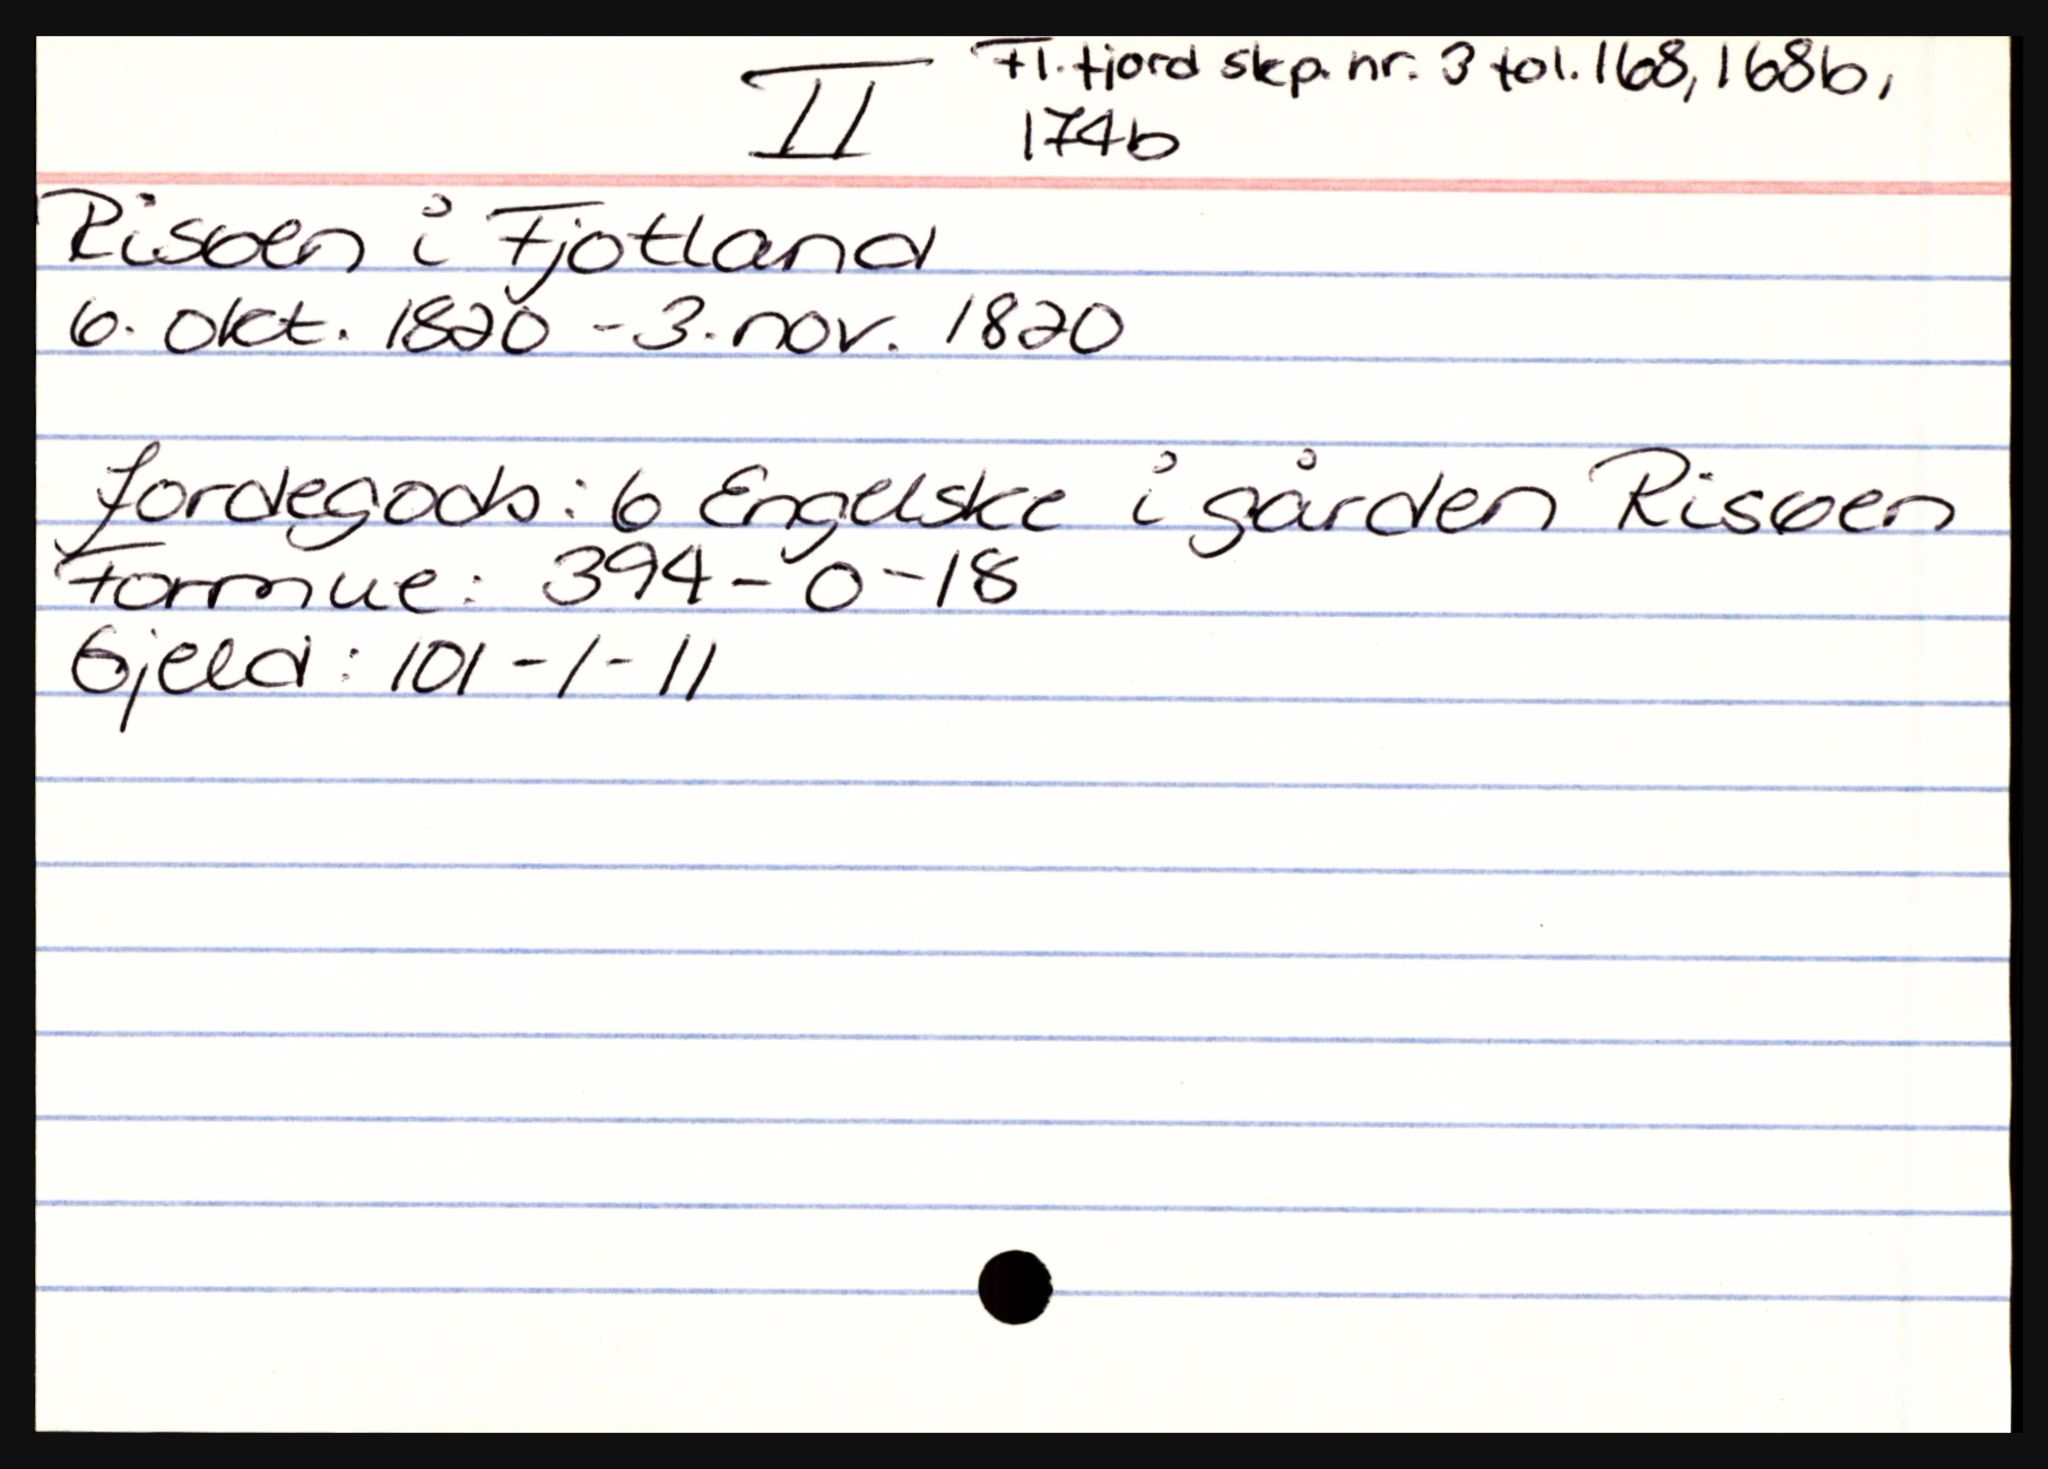 II Fl.fjord skp. nr. 3 fol. 168, 168b,
174b
Risøen i Fjotland
6. okt. 1820 - 3. nov. 1820
Jordegods: 6 Engelske i gården Risøen
Formue: 394 - 0 - 18
Gjeld: 101 - 1 - 11